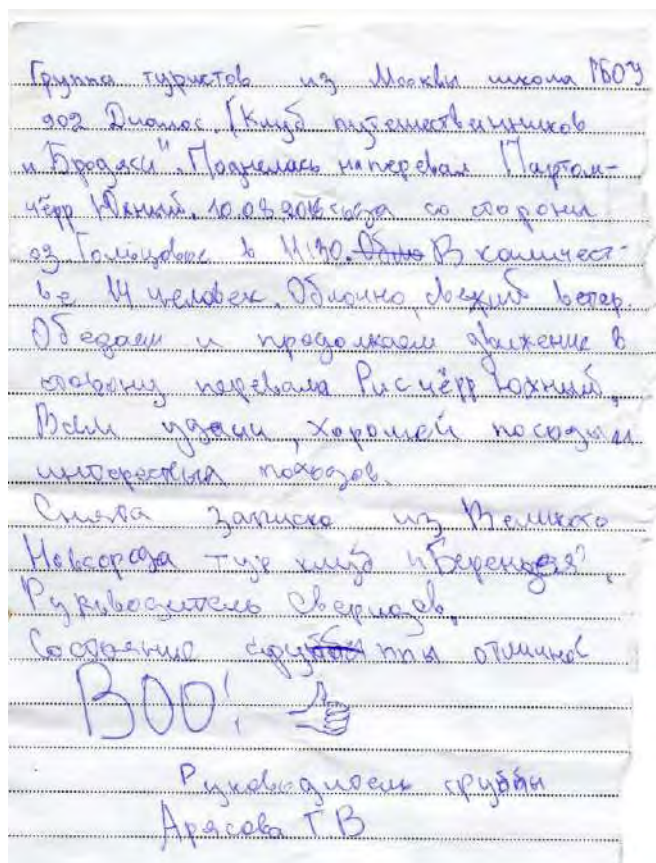 Группа туристов из Москвы школа ГБОУ
902 Диалог. "Клуб путешественников
и Бродяги". Поднелась на перевал Партом-
чёрр Южный. 10.08.2016 года со стороны
оз Гольцовое в 11:30. В количест-
ве 14 человек. Облачно, свежий ветер.
Обедаем и продолжаем движение в
сторону перевала Рисчёрр Южный.
Всем удачи, хорошей погоды и
интересных походов.
Снята записка из Великого
Новгорода тур клуб "Берендея",
Руководитель
Состояние группы отличное
ВОО!
Руководитель группы
Арясова Т В